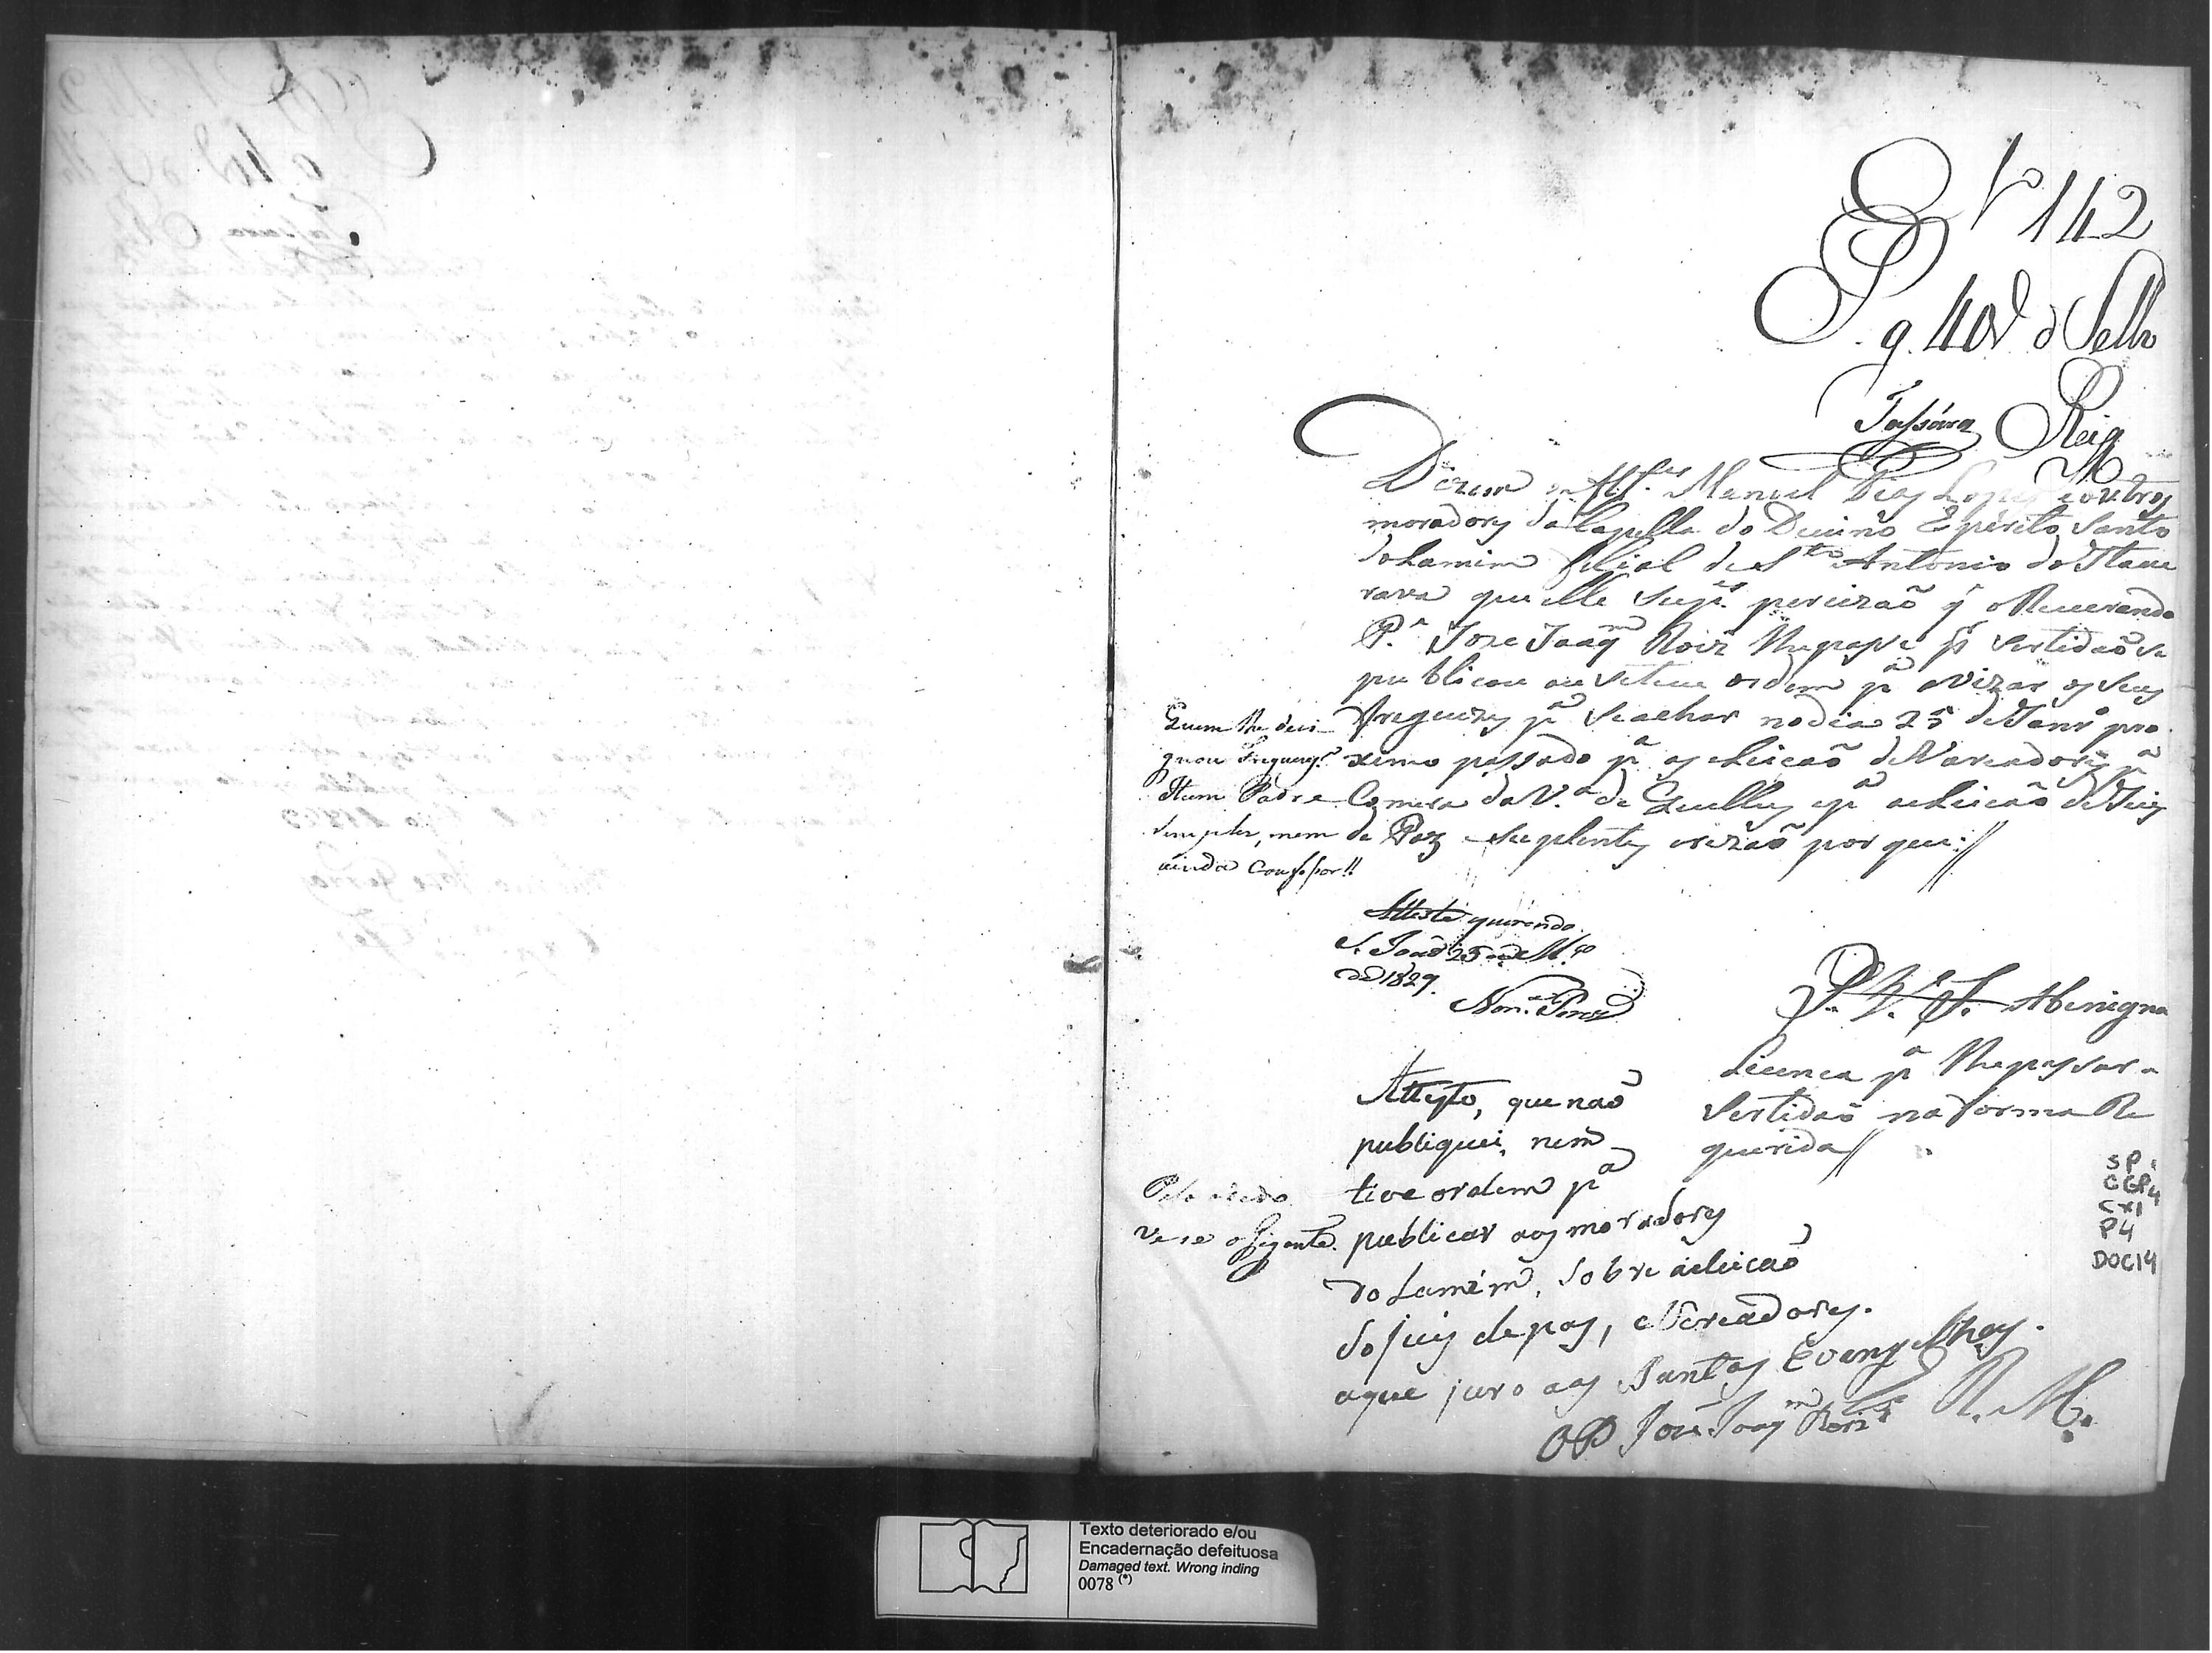 Nº 142
Pg. 40 d Sello
Reis
Dizem os Alf.es Manoel Dias Lopes e outros
moradores da Capella do Deuino Espirito Santo
do Lamim filial de S.to Antonio do Itaue
rava que elle Sup.es percizaõ q̃ o Reuerendo
P.e Joze Joaq.m Roiz lhe passe p.r Sertidaõ se
publicou ou se teue ordem p.a avizar os seus
Freguezes p.a se achar no dia 25 de Janr.o pro
ximo passado p.a as eleicaõ de Vareadores p.a
Camera da V.a de Quelluz e p.a aeleicaõ de Juis
de Paz e suplentes e rezaõ por que://
Quem lhe desi
gnou Freguez.s
Hum Padre
simples, nem
ainda Confessor!!
Atteste querendo.
S. Joaõ 25 de M.ço
de 1829.
P. V.S. Abenigna
Licenca p.a lhe passar a
Sertidaõ na forma Re
querida//
Attesto, que naõ
publiquei, nem
tive ordem p.a
publicar aos moradores
do Lamim, sobre aeleicaõ
do juis de pas, e Vereadores.
aque juro aos Santos Evangelhos.
O P Joze Joaq.m Roiz
R. M.
SP
CGP4
CX1
P4
DOC14
Texto deteriorado e/ou
Encadernação defeituosa
Damaged text. Wrong inding
0078 (*)